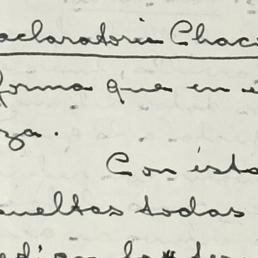 aclaratoria Chac
forma que en e
za.
Con ésta
ueltas todas